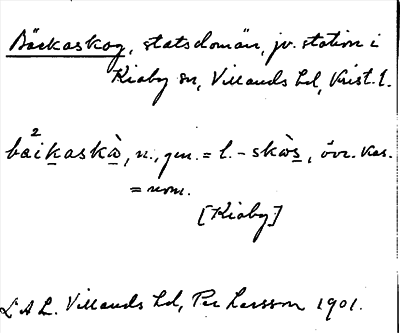 Bäckaskog, statsdomän, jv. station i
Kiaby sn, Villands hd, Krist. l.
2
bæikaskà, n., gen. = l. - skàs, övr. kas.
= nom.
[Kiaby]
L A L. Villands hd, Per Larsson 1901.